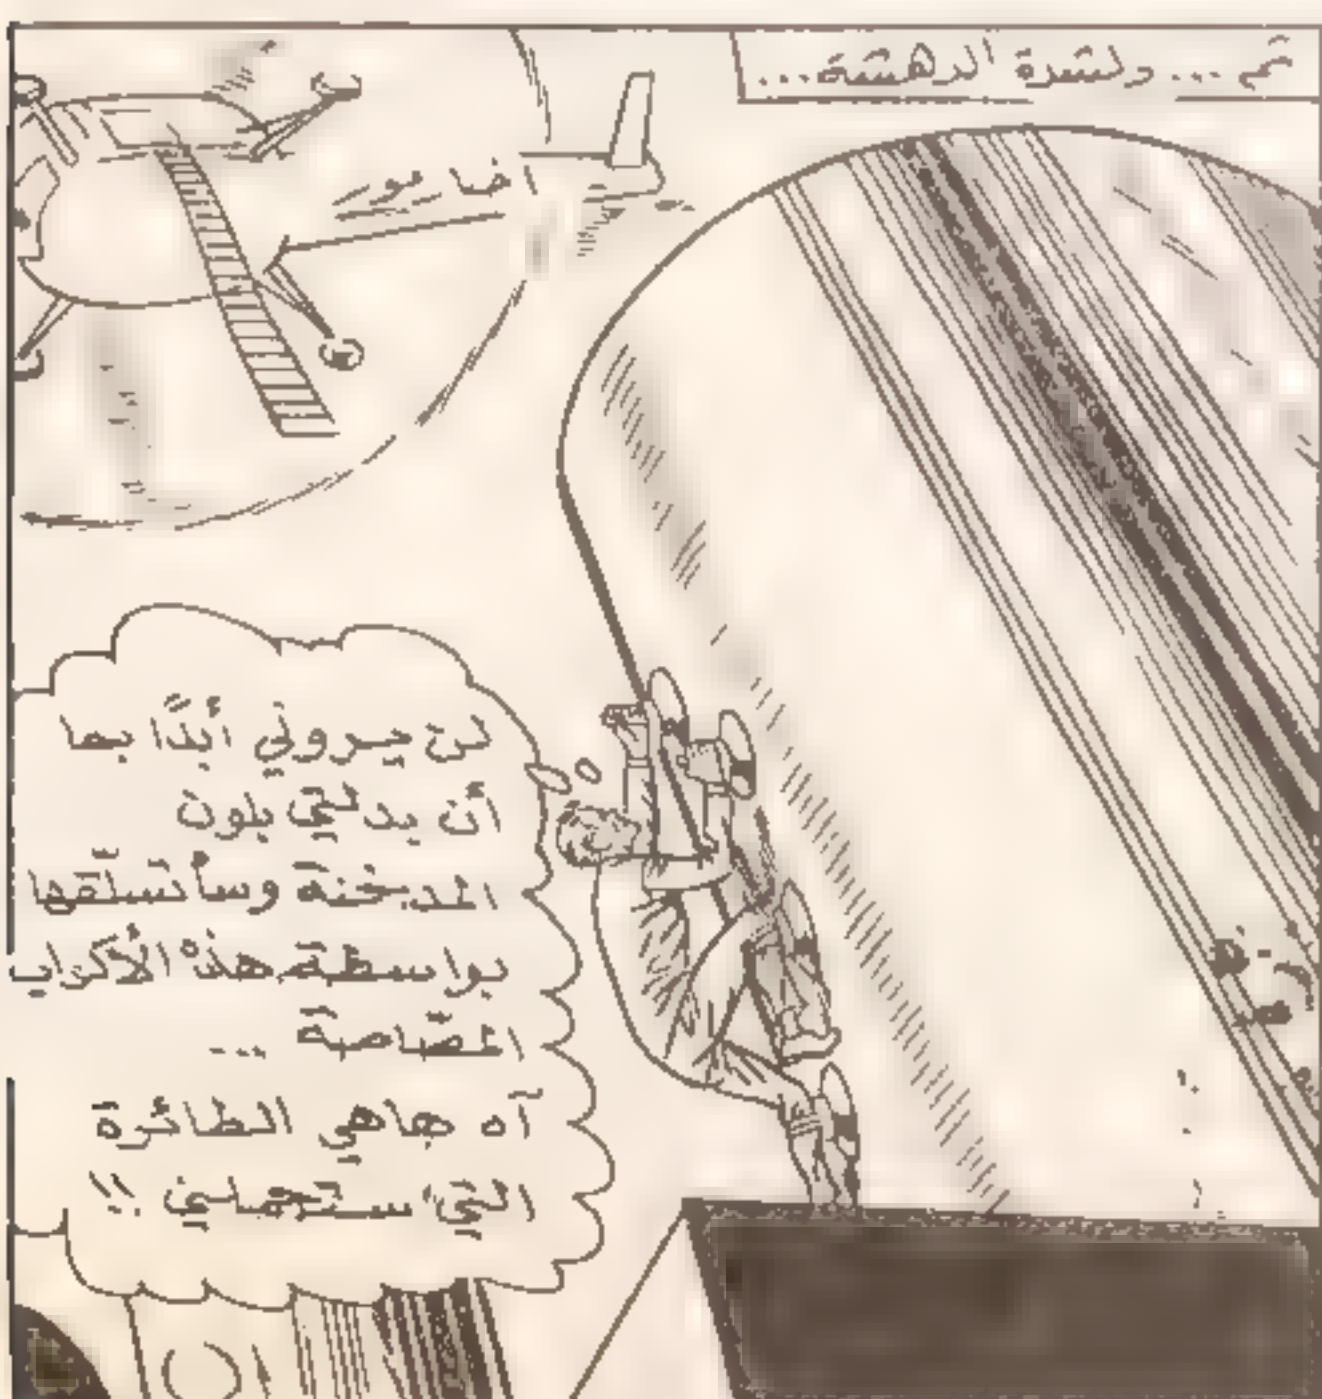 ثم ... ولشدة الدهشة ...
لن يروني أبدًا بما
أن بدلتي بلون
المدخنة وسأتسلّقها
بواسطة هذه الأكواب
المصّاصة ...
آه هاهي الطائرة
التي ستحملني !!